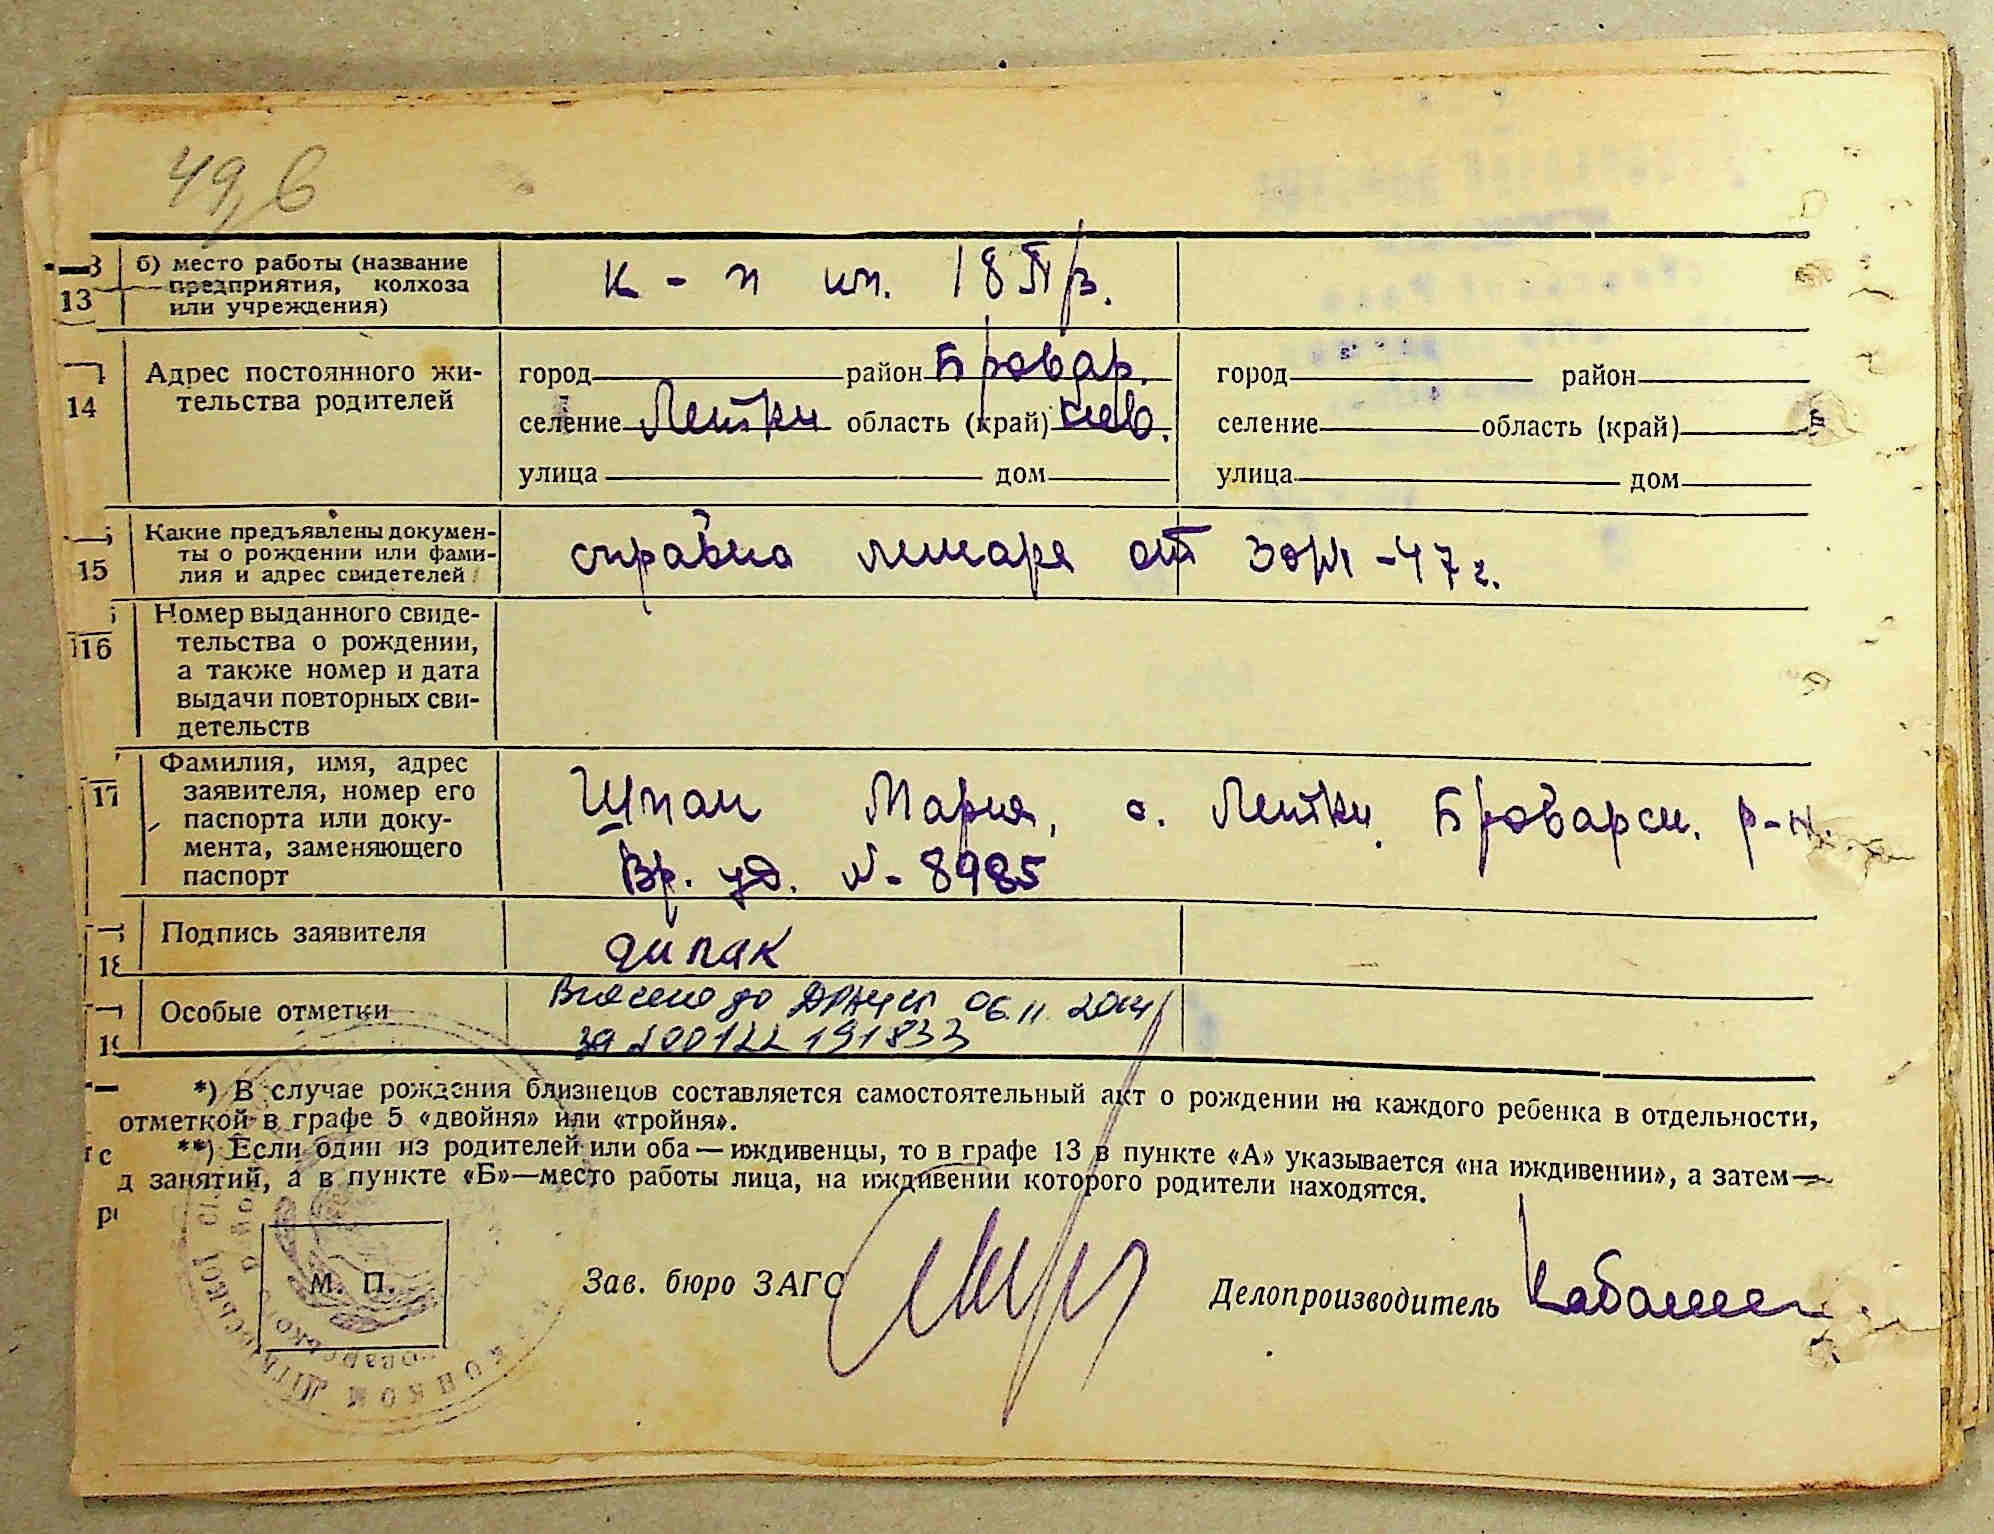 49, в
13
б) место работы (название
предприятия, колхоза
или учреждения)
к-п им. 18 П/з.
14
Адрес постоянного жи-
тельства родителей
город район Бровар.
селение Летки область (край) Киев.
улица дом
город район
селение область (край)
улица дом
15
Какие предъявлены докумен-
ты о рождении или фами-
лия и адрес свидетелей
справка лекаря от -47 г.
16
Номер выданного свиде-
тельства о рождении,
а также номер и дата
выдачи повторных сви-
детельств
17
Фамилия, имя, адрес
заявителя, номер его
паспорта или доку-
мента, заменяющего
паспорт
Шпак Мария, с. Летки Броварск. р-н.
Вр. уд. № 8985
18
Подпись заявителя
шпак
Особые отметки
Внесено до ДРАЦСГ 06.11.2014
за 00122191833
*) В случае рождения близнецов составляется самостоятельный акт о рождении на каждого ребенка в отдельности,
отметкой в графе 5 «двойня» или «тройня».
**) Если один из родителей или оба — иждивенцы, то в графе 13 в пункте «А» указывается «на иждивении», а затем—
д занятий, а в пункте «Б»—место работы лица, на иждивении которого родители находятся.
М. П.
Зав. бюро ЗАГС
Делопроизводитель